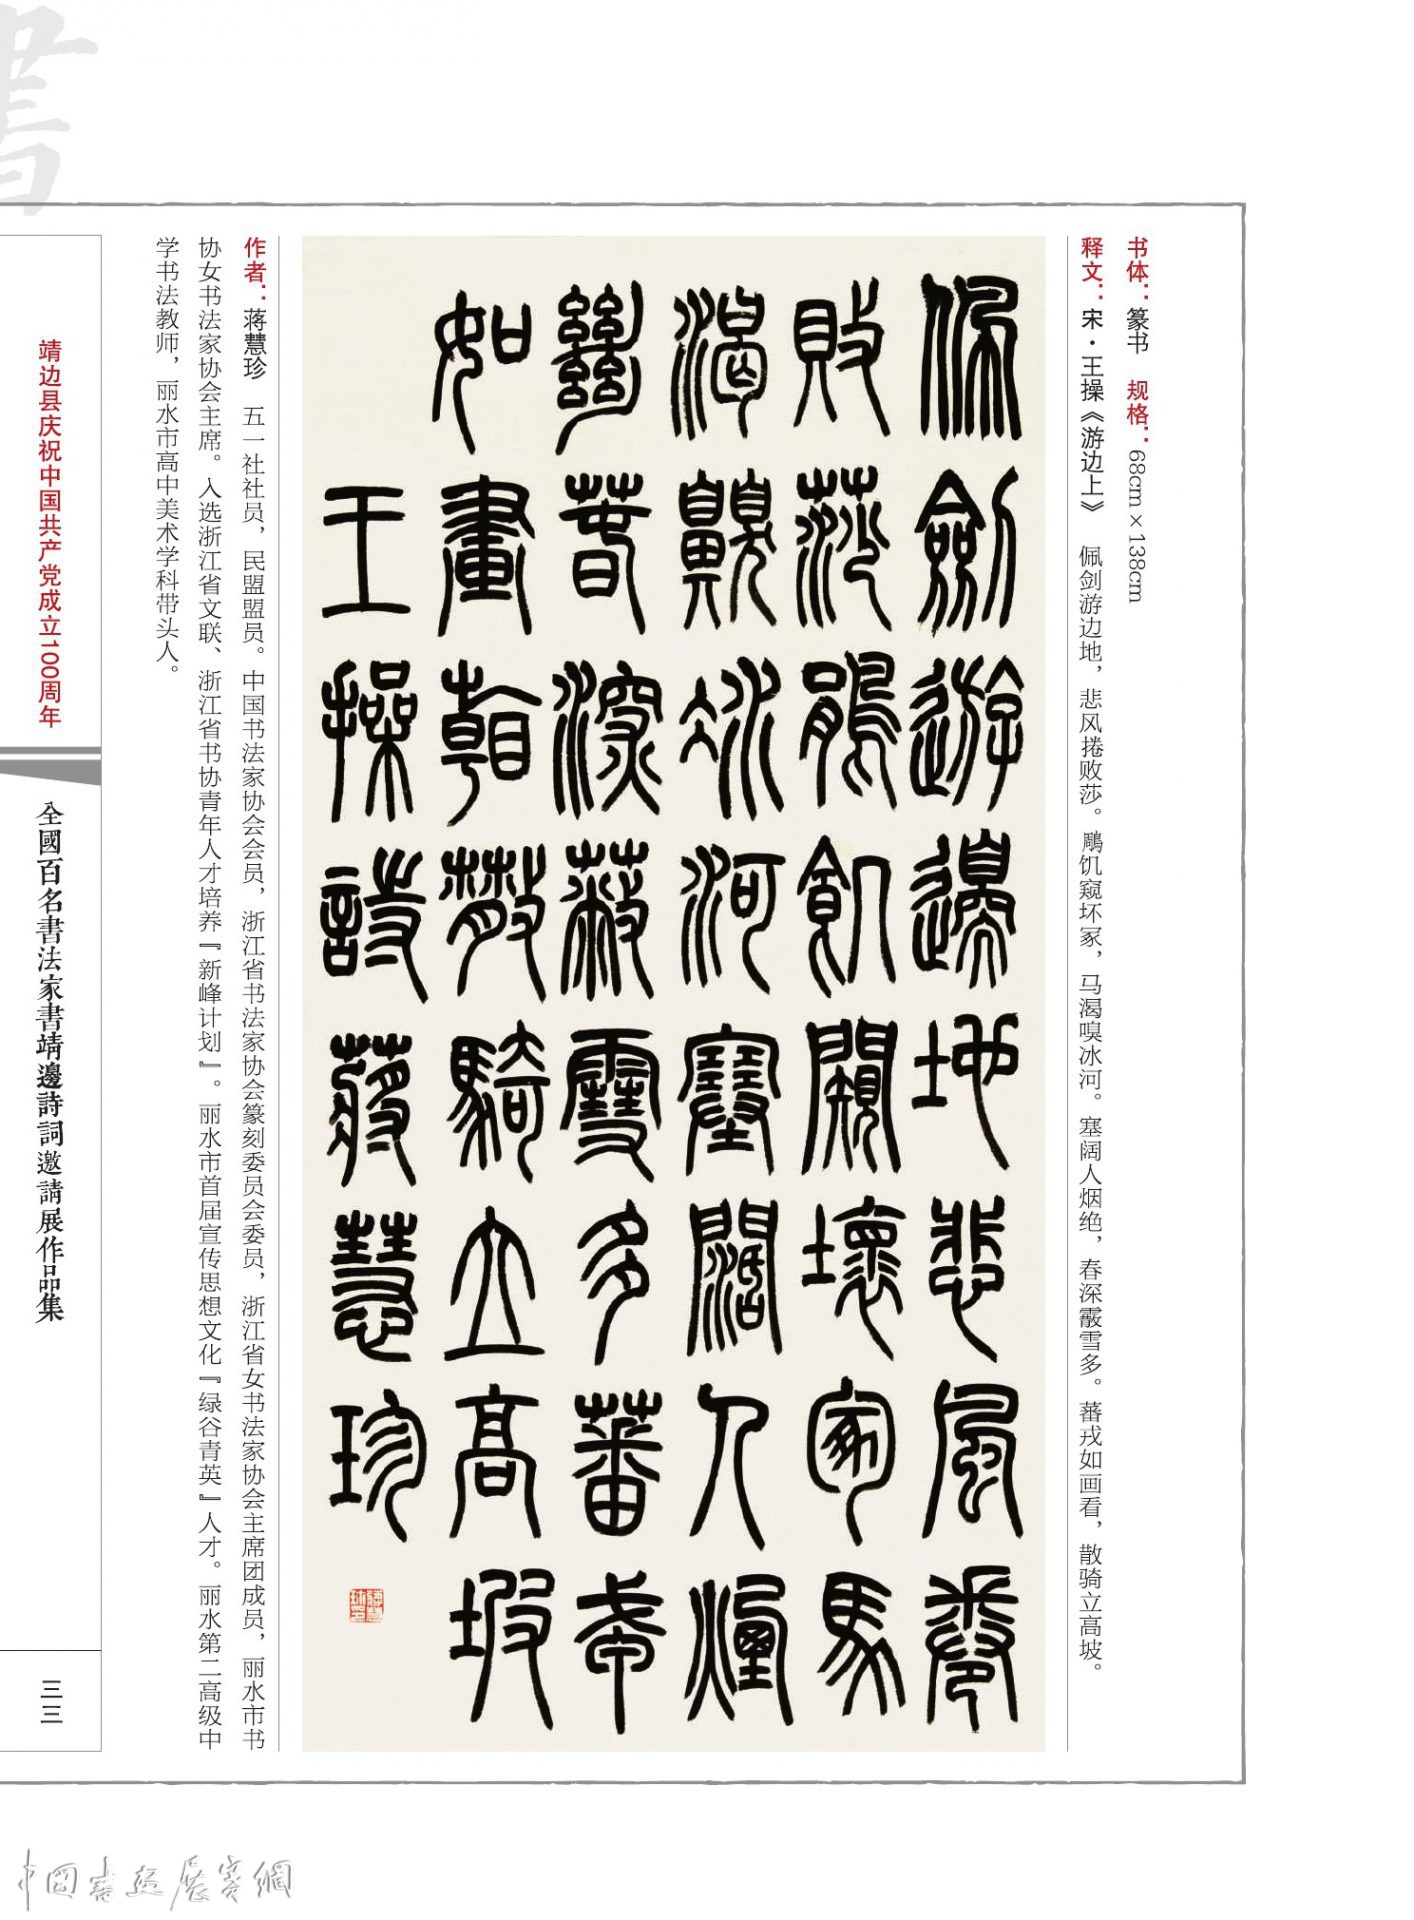 书体：篆书　规格：68cm×138cm
释文：宋·王操《游边上》　佩剑游边地，悲风捲败莎。鵰饥窥坏冢，马渴嗅冰河。塞阔人烟绝，春深霰雪多。蕃戎如画看，散骑立高坡。
佩劍遊邊地悲風捲
敗莎鵰飢闚壞冢馬
渴齅冰河塞闊人煙
絕春深霰雪多蕃戎
如畫看散騎立高坡
王操詩蒋慧珍
作者：蒋慧珍　五一社社员，民盟盟员。中国书法家协会会员，浙江省书法家协会篆刻委员会委员，浙江省女书法家协会主席团成员，丽水市书
协女书法家协会主席。入选浙江省文联、浙江省书协青年人才培养『新峰计划』。丽水市首届宣传思想文化『绿谷青英』人才。丽水第二高级中
学书法教师，丽水市高中美术学科带头人。
靖边县庆祝中国共产党成立100周年
全國百名書法家書靖邊詩詞邀請展作品集
三三
書
中國書画展赛網